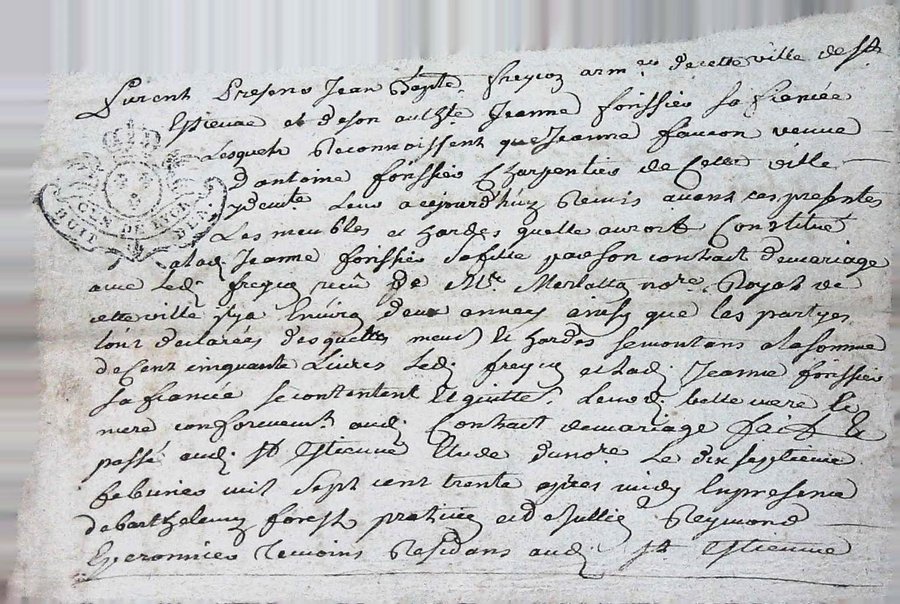 Furent presens Jean Bapte freycon armer de cette ville de St
Estienne et de son authté Jeanne forissier sa fiancée
Lesquels Reconnoissent que Jeanne faucon veuve
d'antoine forissier Charpentier de Cette ville
GEN. DE LYON
HUIT DEN.
Leur a cejourd'huy Remis avant ces presentes
Les meubles et hardes quelle auroit Constitué
a lad. Jeanne forissier sa fille par son contract de mariage
avec led. freycon reçu de Me. Merlatta nore. Royal de
cette ville il y a Environ deux années ainsy que les partyes
l'ont declarées desquels meub. et hardes se montans a la somme
de Cent cinquante Livres Led. freycon et lad. Jeanne forissier
Sa fiancée se contentent Et quittent Leurd. belle mere Et
mere conformement aud. Contract de mariage fait Et
passé aud. St Estienne Etude du nore. Le dix septieme
febvrier mil sept cent trente apres midy En presence
de barthelemy forest praticien et de Reymond
Eperonnier temoins Residans aud. St Estienne